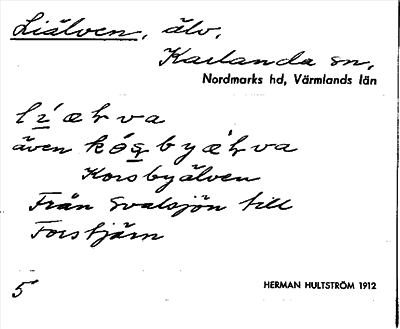 Liälven, älv,
Karlanda sn,
Nordmarks hd, Värmlands län
lí̱ æƚva
även kó̱s̱byæ̀ƚva
Korsbyälven
Från Svalsjön till
Forstjärn
5
HERMAN HULTSTRÖM 1912